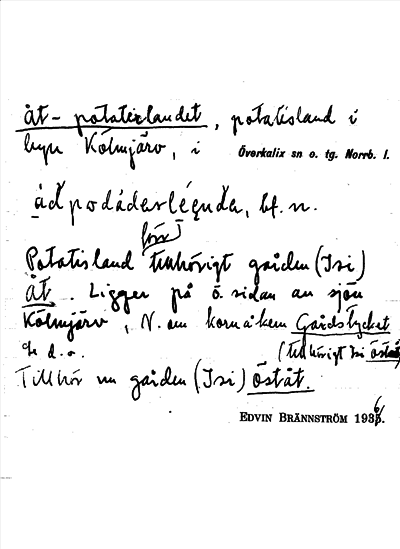 åt-potatislandet, potatisland i
byn Kölmjärv, i Överkalix sn o. tg. Norrb. l.
bf. n.
förr
Potatisland tillhörigt gården (Isi)
åt. Ligger på ö. sidan av sjön
Kölmjärv, N. om kornåkern Gårdstycket
(tillhörigt Isi Öståt)
Tillhör nu gården (Isi) Öståt.
EDVIN BRÄNNSTRÖM 1936.